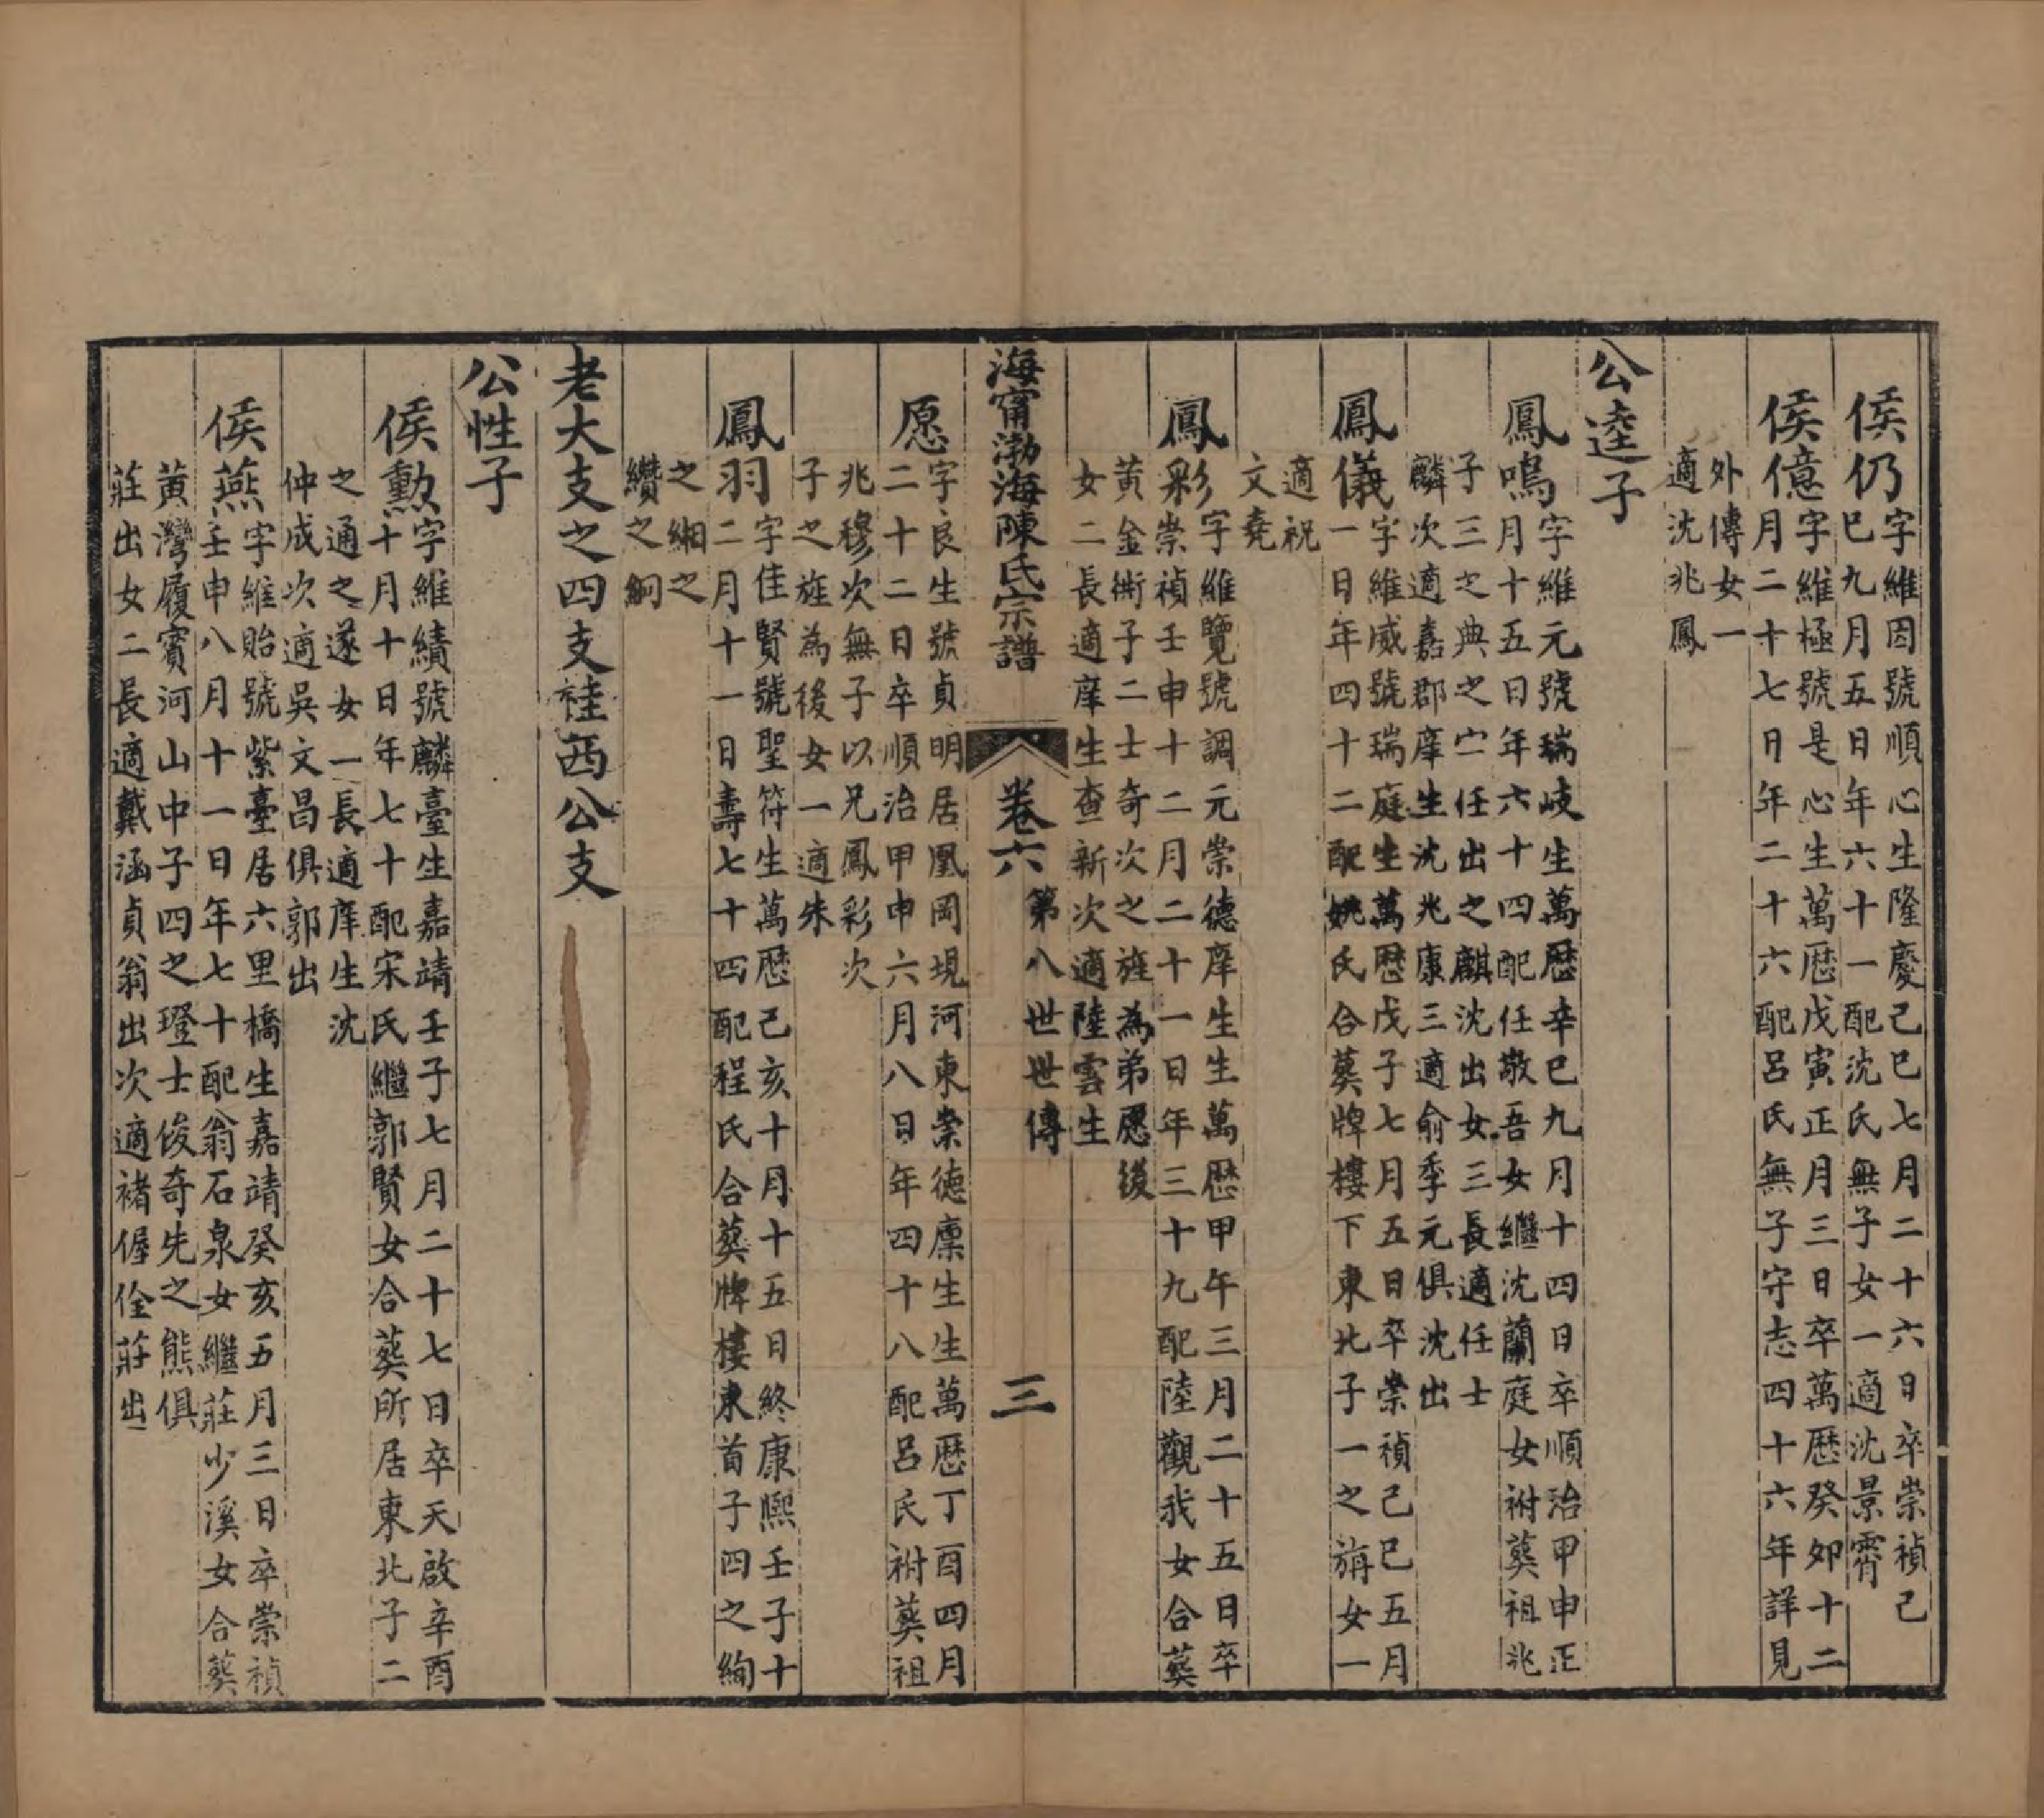 侯仍
字維因號順心生隆慶己巳七月二十六日卒崇禎己
巳九月五日年六十一配沈氏無子女一適沈景霄
侯億
字維極號是心生萬歷戊寅正月三日卒萬歷癸卯十二
月二十七日年二十六配呂氏無子守志四十六年詳見
外傳女一
適沈兆鳳
公逵子
鳳鳴
字維元號瑞岐生萬歷辛巳九月十四日卒順治甲申正
月十五日年六十四配任敬吾女繼沈蘭庭女祔葬祖兆
子三之典之宀任出之麒沈出女三長適任士
麟次適嘉郡庠生沈兆康三適俞季元俱沈出
鳳儀
字維威號瑞庭生萬歷戊子七月五日卒崇禎己巳五月
一日年四十二配姚氏合葬牌樓下東北子一之旃女一
適祝
文堯
鳳彩
字維覽號調元崇德庠生生萬歷甲午三月二十五日卒
崇禎壬申十二月二十一日年三十九配陸觀我女合葬
黃金衖子二士奇次之旌為弟愿後
女二長適庠生查新次適陸雲生
海甯渤海陳氏宗譜
卷六
第八世世傳
三
愿
字良生號貞明居凰岡堄河東崇德廩生生萬歷丁酉四月
二十二日卒順治甲申六月八日年四十八配呂氏祔葬祖
兆穆次無子以兄鳳彩次
子之旌為後女一適朱
鳳羽
字佳賢號聖符生萬歷己亥十月十五日終康熙壬子十
二月十一日壽七十四配程氏合葬牌樓東首子四之絢
之緗之
纘之絅
老大支之四支桂西公支
公性子
侯勲
字維績號麟臺生嘉靖壬子七月二十七日卒天啟辛酉
十月十日年七十配宋氏繼郭賢女合葬所居東北子二
之通之遂女一長適庠生沈
仲成次適吳文昌俱郭出
侯燕
字維貽號紫臺居六里橋生嘉靖癸亥五月三日卒崇禎
壬申八月十一日年七十配翁石泉女繼莊少溪女合葬
黃灣履賓河山中子四之璒士俊奇先之熊俱
莊出女二長適戴涵貞翁出次適褚偓佺莊出